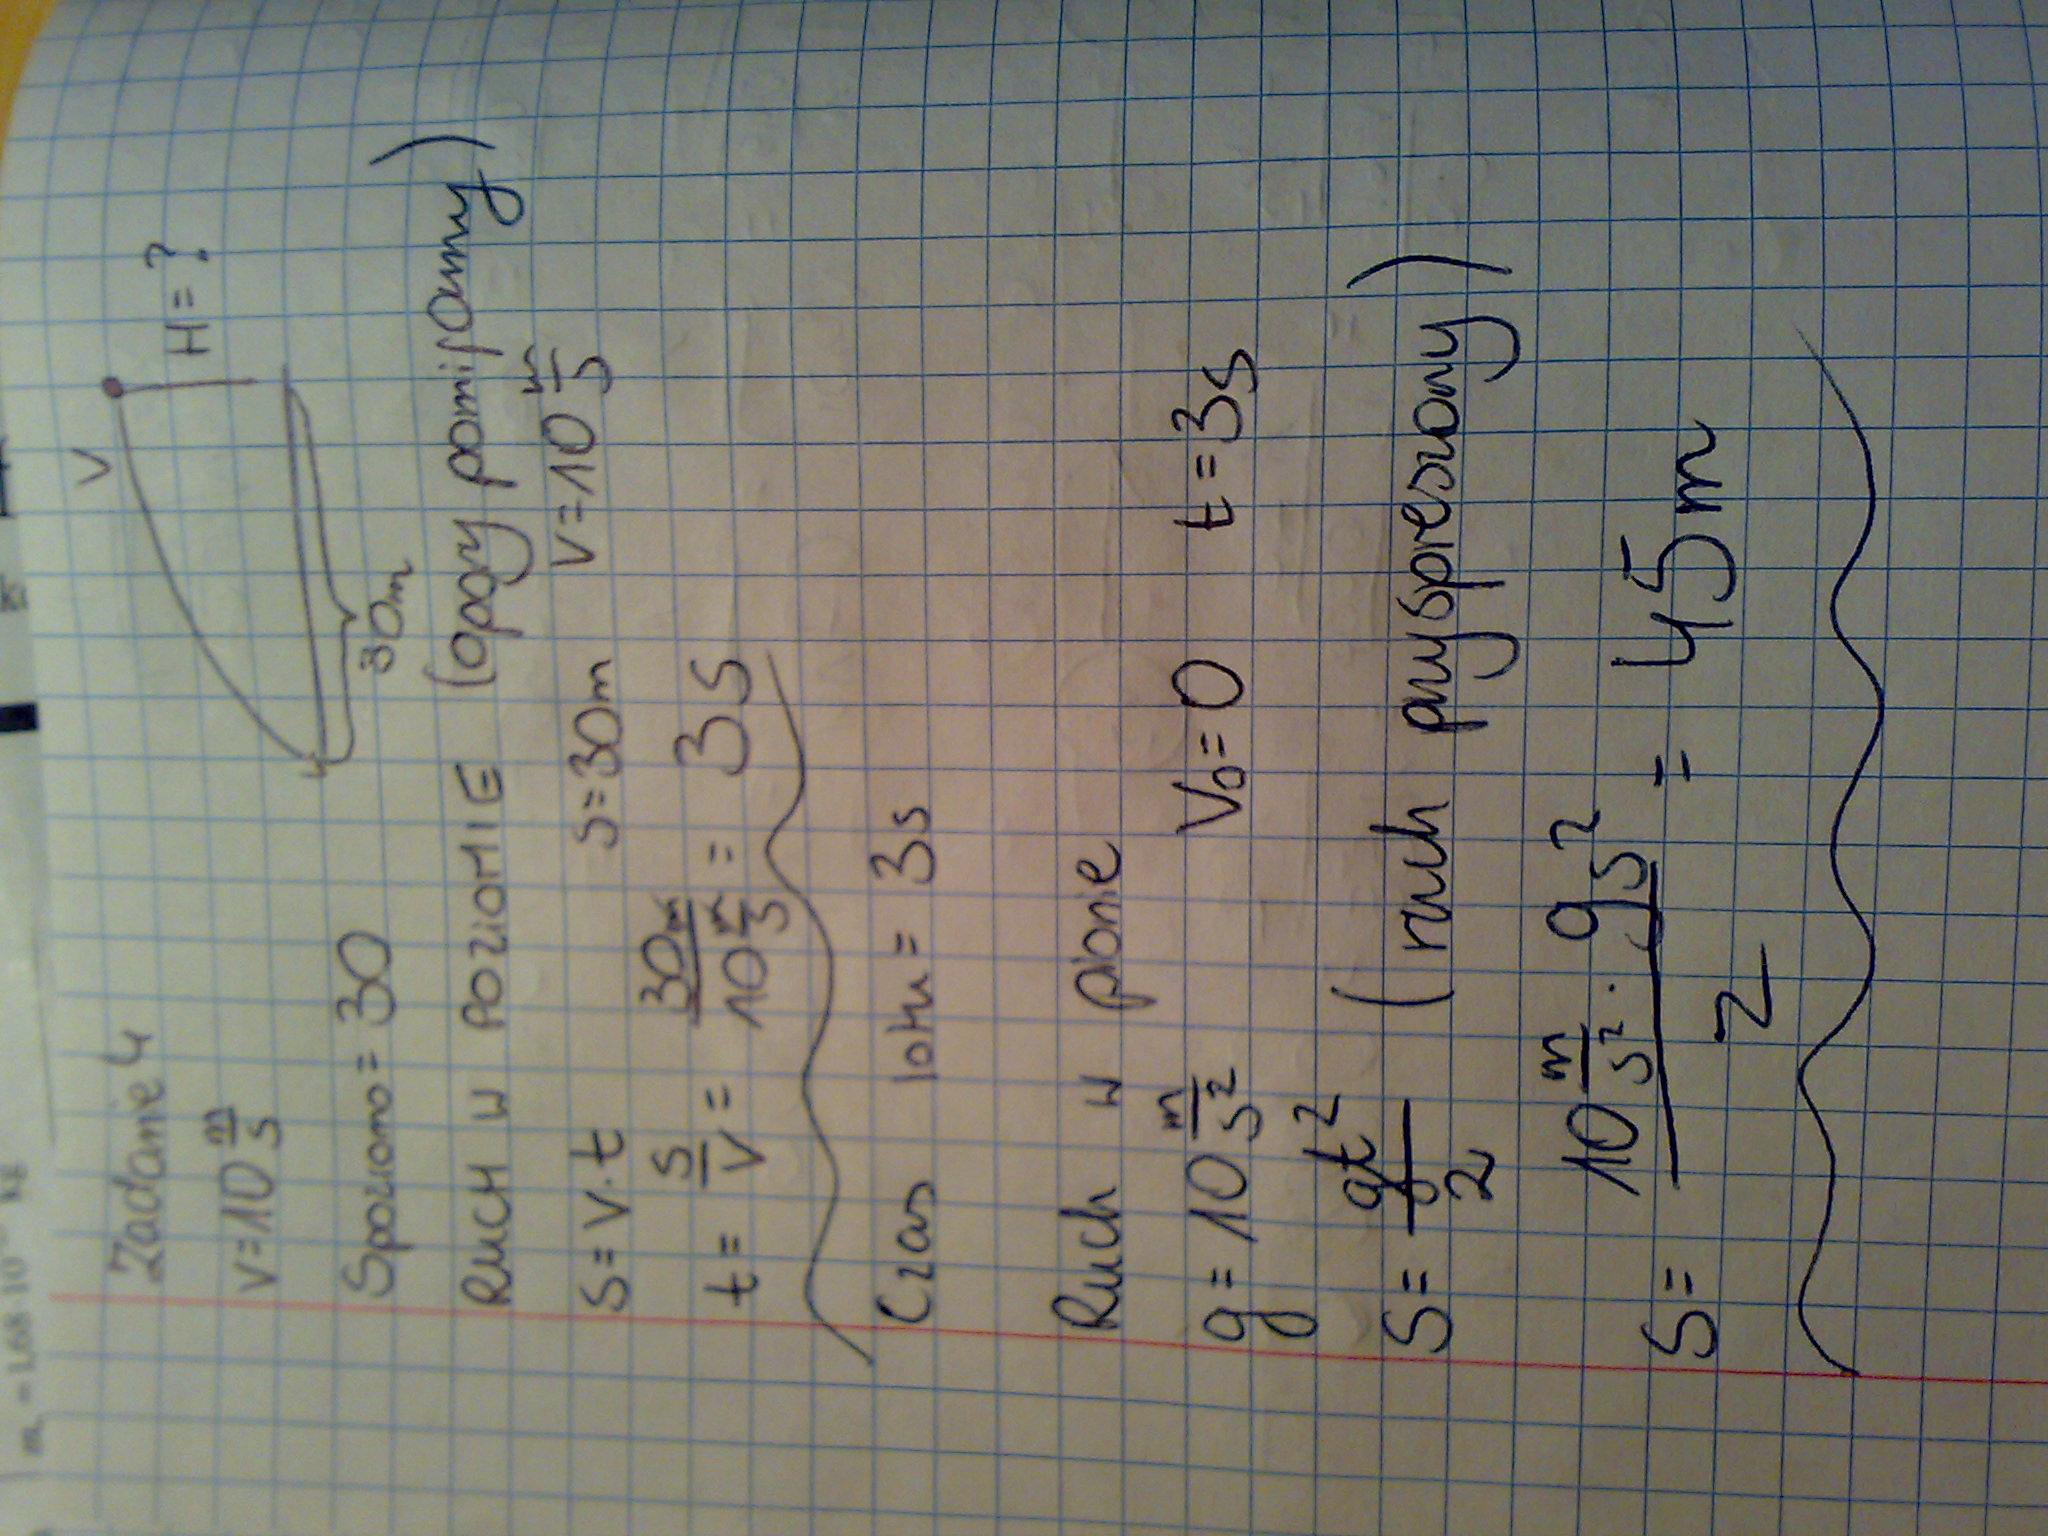 Zadanie 4
V
H = ?
V = 10 m/s
30m
Spoziomo = 30
RUCH W POZIOMIE (opory pomijamy)
S = V · t
s = 30m
V = 10 m/s
t = s/V = 30m / 10 m/s = 3s
Czas lotu = 3s
Ruch w pionie
g = 10 m/s²
V₀ = 0
t = 3s
S = gt²/2 (ruch przyspieszony)
S = 10 m/s² · 9s² / 2 = 45m